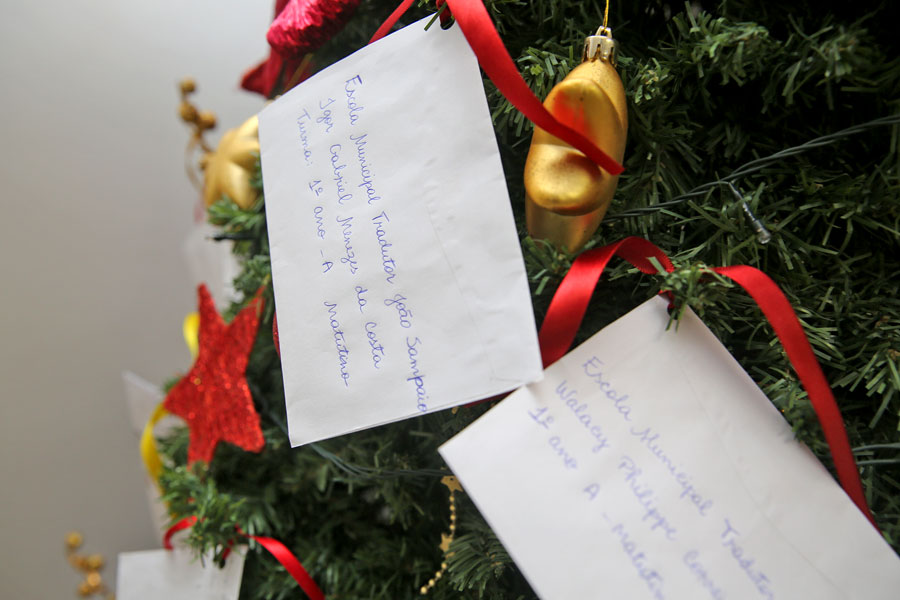 Escola Municipal Tradutor João Sampaio
Igor Gabriel Menezes da Costa
Turma: 1º ano - A Matutino
Escola Municipal Tradutor
Walacy Philippe
1º ano A - Matutin